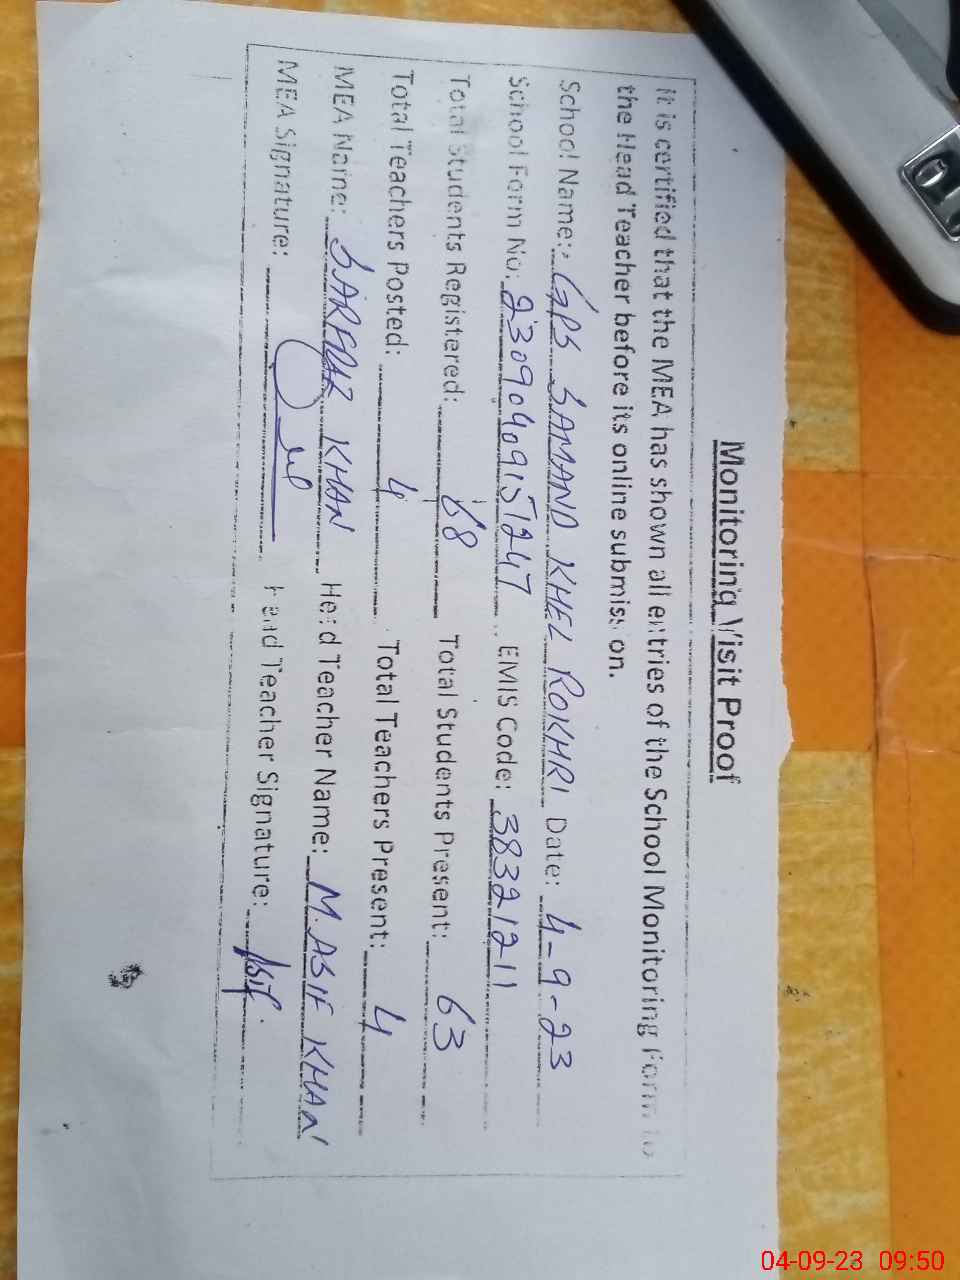 Monitoring Visit Proof
It is certified that the MEA has shown all entries of the School Monitoring Form to
the Head Teacher before its online submission.
School Name: GPS SAMAND KHEL ROKHRI Date: 4-9-23
School Form No: 23090409151247 EMIS Code: 38321211
Total Students Registered: 68 Total Students Present: 63
Total Teachers Posted: 4 Total Teachers Present: 4
MEA Name: SARFRAZ KHAN Head Teacher Name: M. ASIF KHAN
MEA Signature: Head Teacher Signature: Asif
04-09-23 09:50